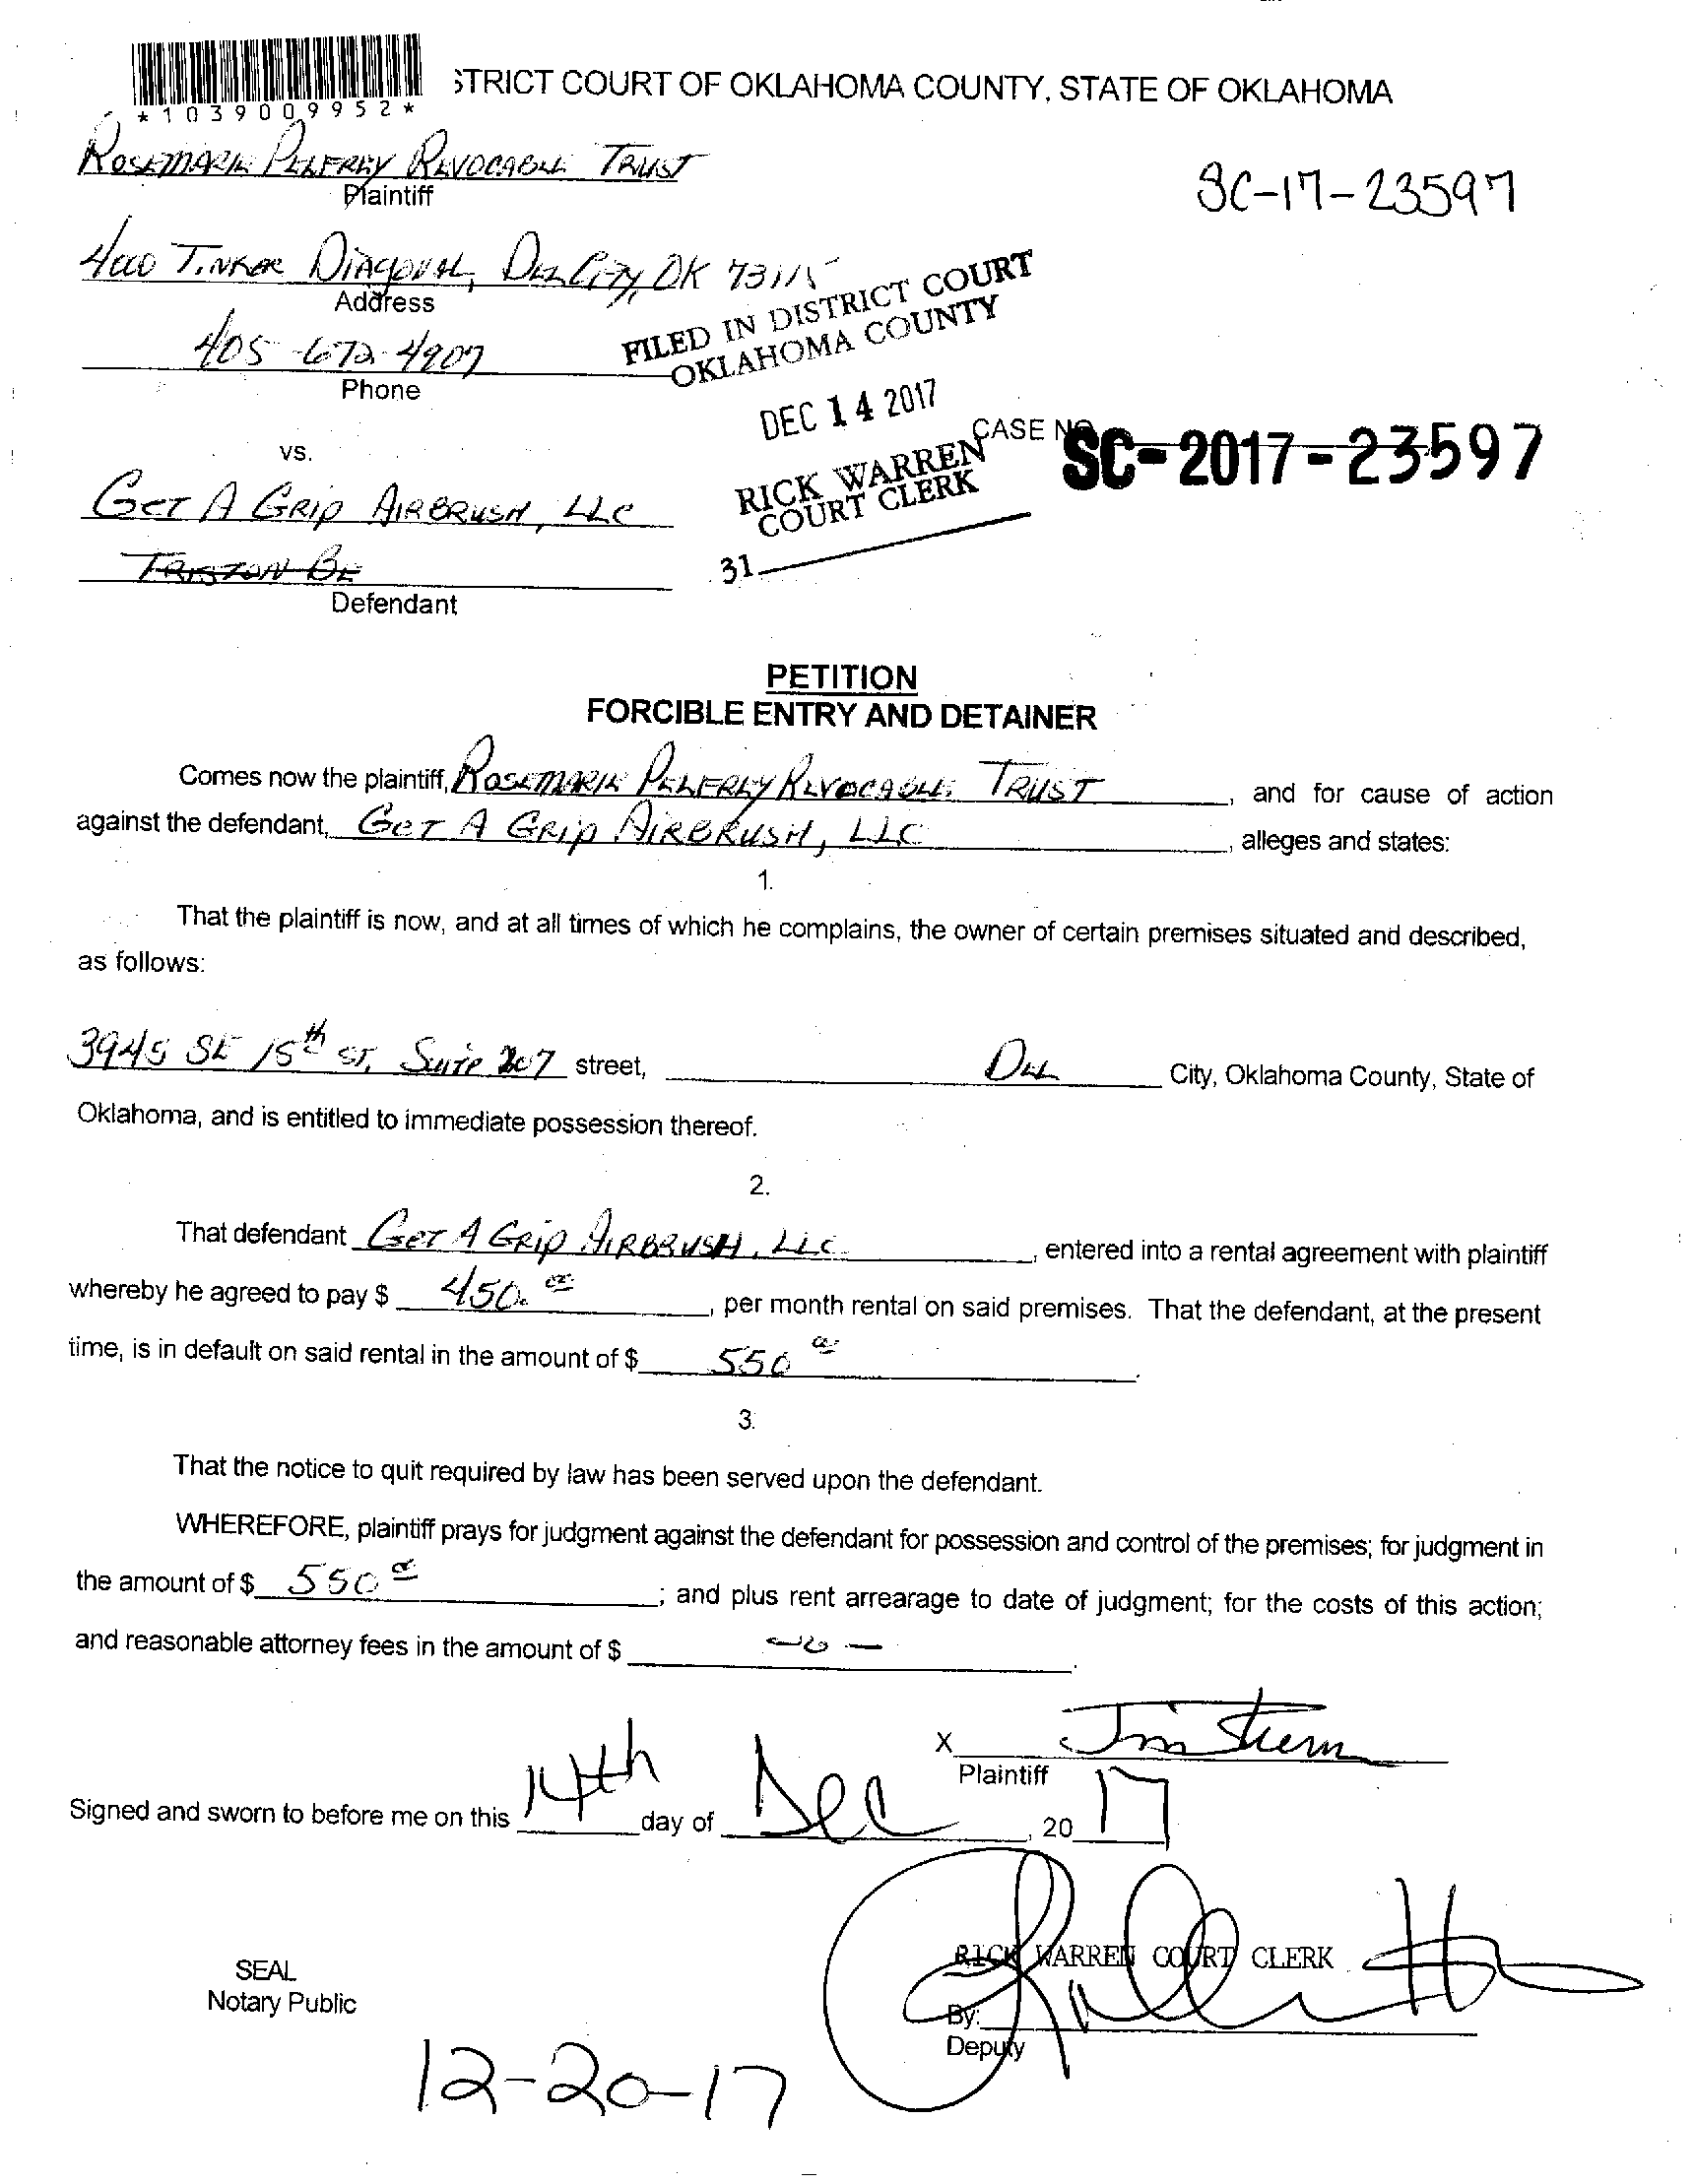 STRICT COURT OF OKLAHOMA COUNTY, STATE OF OKLAHOMA
*1039009952*
ROSEMARIE PELFREY REVOCABLE TRUST
Plaintiff
SC-17-23597
4000 TINKER DIAGONAL, DEL CITY, OK 73115
Address
405-672-4907
Phone
FILED IN DISTRICT COURT
OKLAHOMA COUNTY
DEC 14 2017
RICK WARREN
COURT CLERK
31
vs.
CASE NO
SC-2017-23597
GET A GRIP AIRBRUSH, LLC
TRISTON BE
Defendant
PETITION
FORCIBLE ENTRY AND DETAINER
Comes now the plaintiff, ROSEMARIE PELFREY REVOCABLE TRUST, and for cause of action
against the defendant, GET A GRIP AIRBRUSH, LLC, alleges and states:
1.
That the plaintiff is now, and at all times of which he complains, the owner of certain premises situated and described,
as follows:
3945 SE 15th ST, SUITE 207 street, DEL City, Oklahoma County, State of
Oklahoma, and is entitled to immediate possession thereof.
2.
That defendant GET A GRIP AIRBRUSH, LLC, entered into a rental agreement with plaintiff
whereby he agreed to pay $ 450.00, per month rental on said premises. That the defendant, at the present
time, is in default on said rental in the amount of $ 550 00.
3.
That the notice to quit required by law has been served upon the defendant.
WHEREFORE, plaintiff prays for judgment against the defendant for possession and control of the premises; for judgment in
the amount of $ 550 00; and plus rent arrearage to date of judgment; for the costs of this action;
and reasonable attorney fees in the amount of $ -0-.
X Jim Stem
Plaintiff
Signed and sworn to before me on this 14th day of Dec, 20 17
RICK WARREN COURT CLERK
SEAL
Notary Public
By:
Deputy
12-20-17